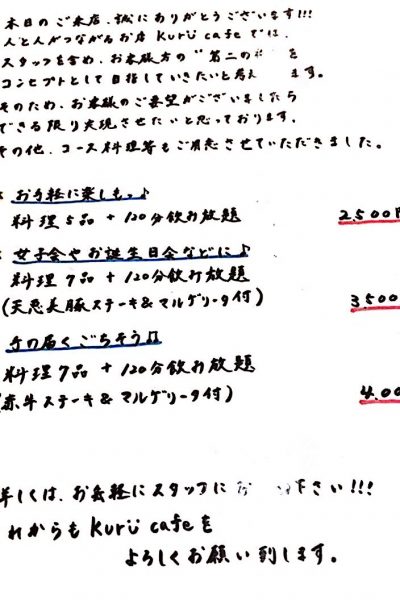 本日のご来店、誠にありがとうございます!!!
人と人がつながるお店 Kurū cafe では、
スタッフを含め、お客様方の "第二の を
コンセプトとして目指していきたいと考え ます。
そのため、お客様のご要望がございましたら
できる限り実現させたいと思っております。
その他、コース料理等もご用意させていただきました。
お手軽に楽しもっ♪
料理5品 + 120分飲み放題 2.500円
女子会やお誕生日会などに♪
料理7品 + 120分飲み放題
(天恵美豚ステーキ&マルゲリータ付) 3.500
手の届くごちそう♫
料理7品 + 120分飲み放題
(赤牛ステーキ&マルゲリータ付) 4.00
詳しくは、お気軽にスタッフに お 下さい!!!
れからも Kurū cafe を
よろしくお願い致します。